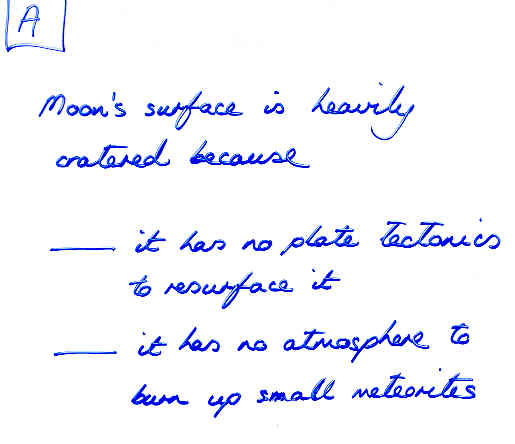 A
Moon's surface is heavily
cratered because
___ it has no plate tectonics
to resurface it
___ it has no atmosphere to
burn up small meteorites